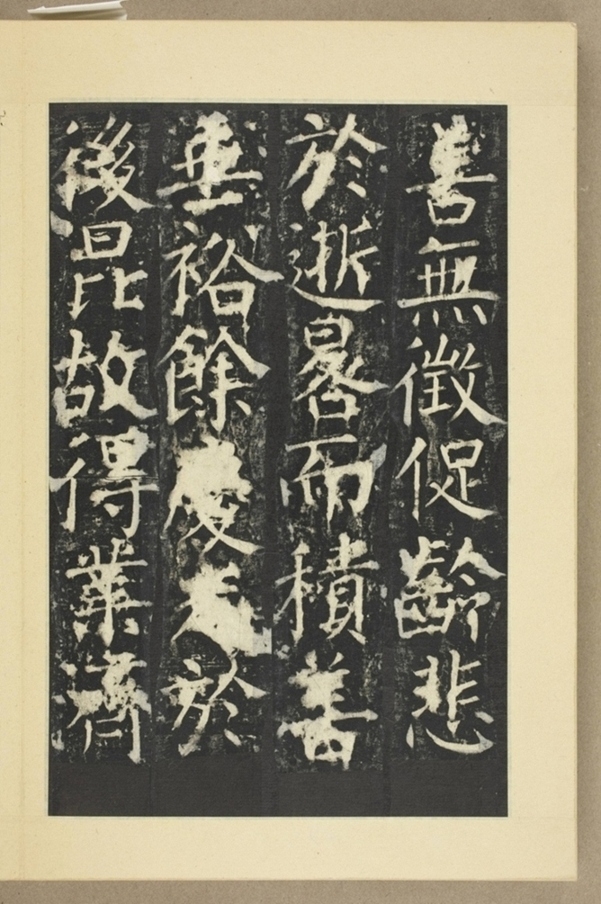 善無徵促齡悲
於逝晷而積善
垂裕餘慶於
後昆故得業濟